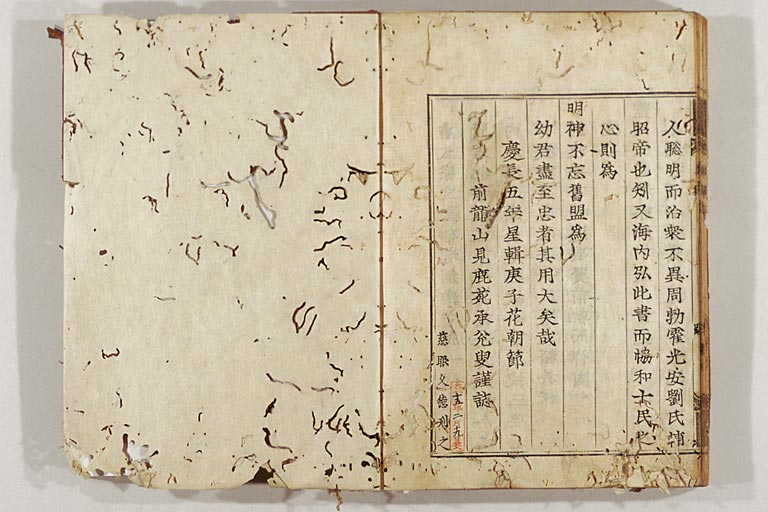 人聡明而治衆不異周勃霍光安劉氏補
昭帝也矧又海內弘此書而協和士民之
心則為
明神不忘舊盟為
幼君盡至忠者其用大矣哉
慶長五年星輯庚子花朝節
前龍山見鹿苑承兌叟謹誌
慈眼久徳刊之